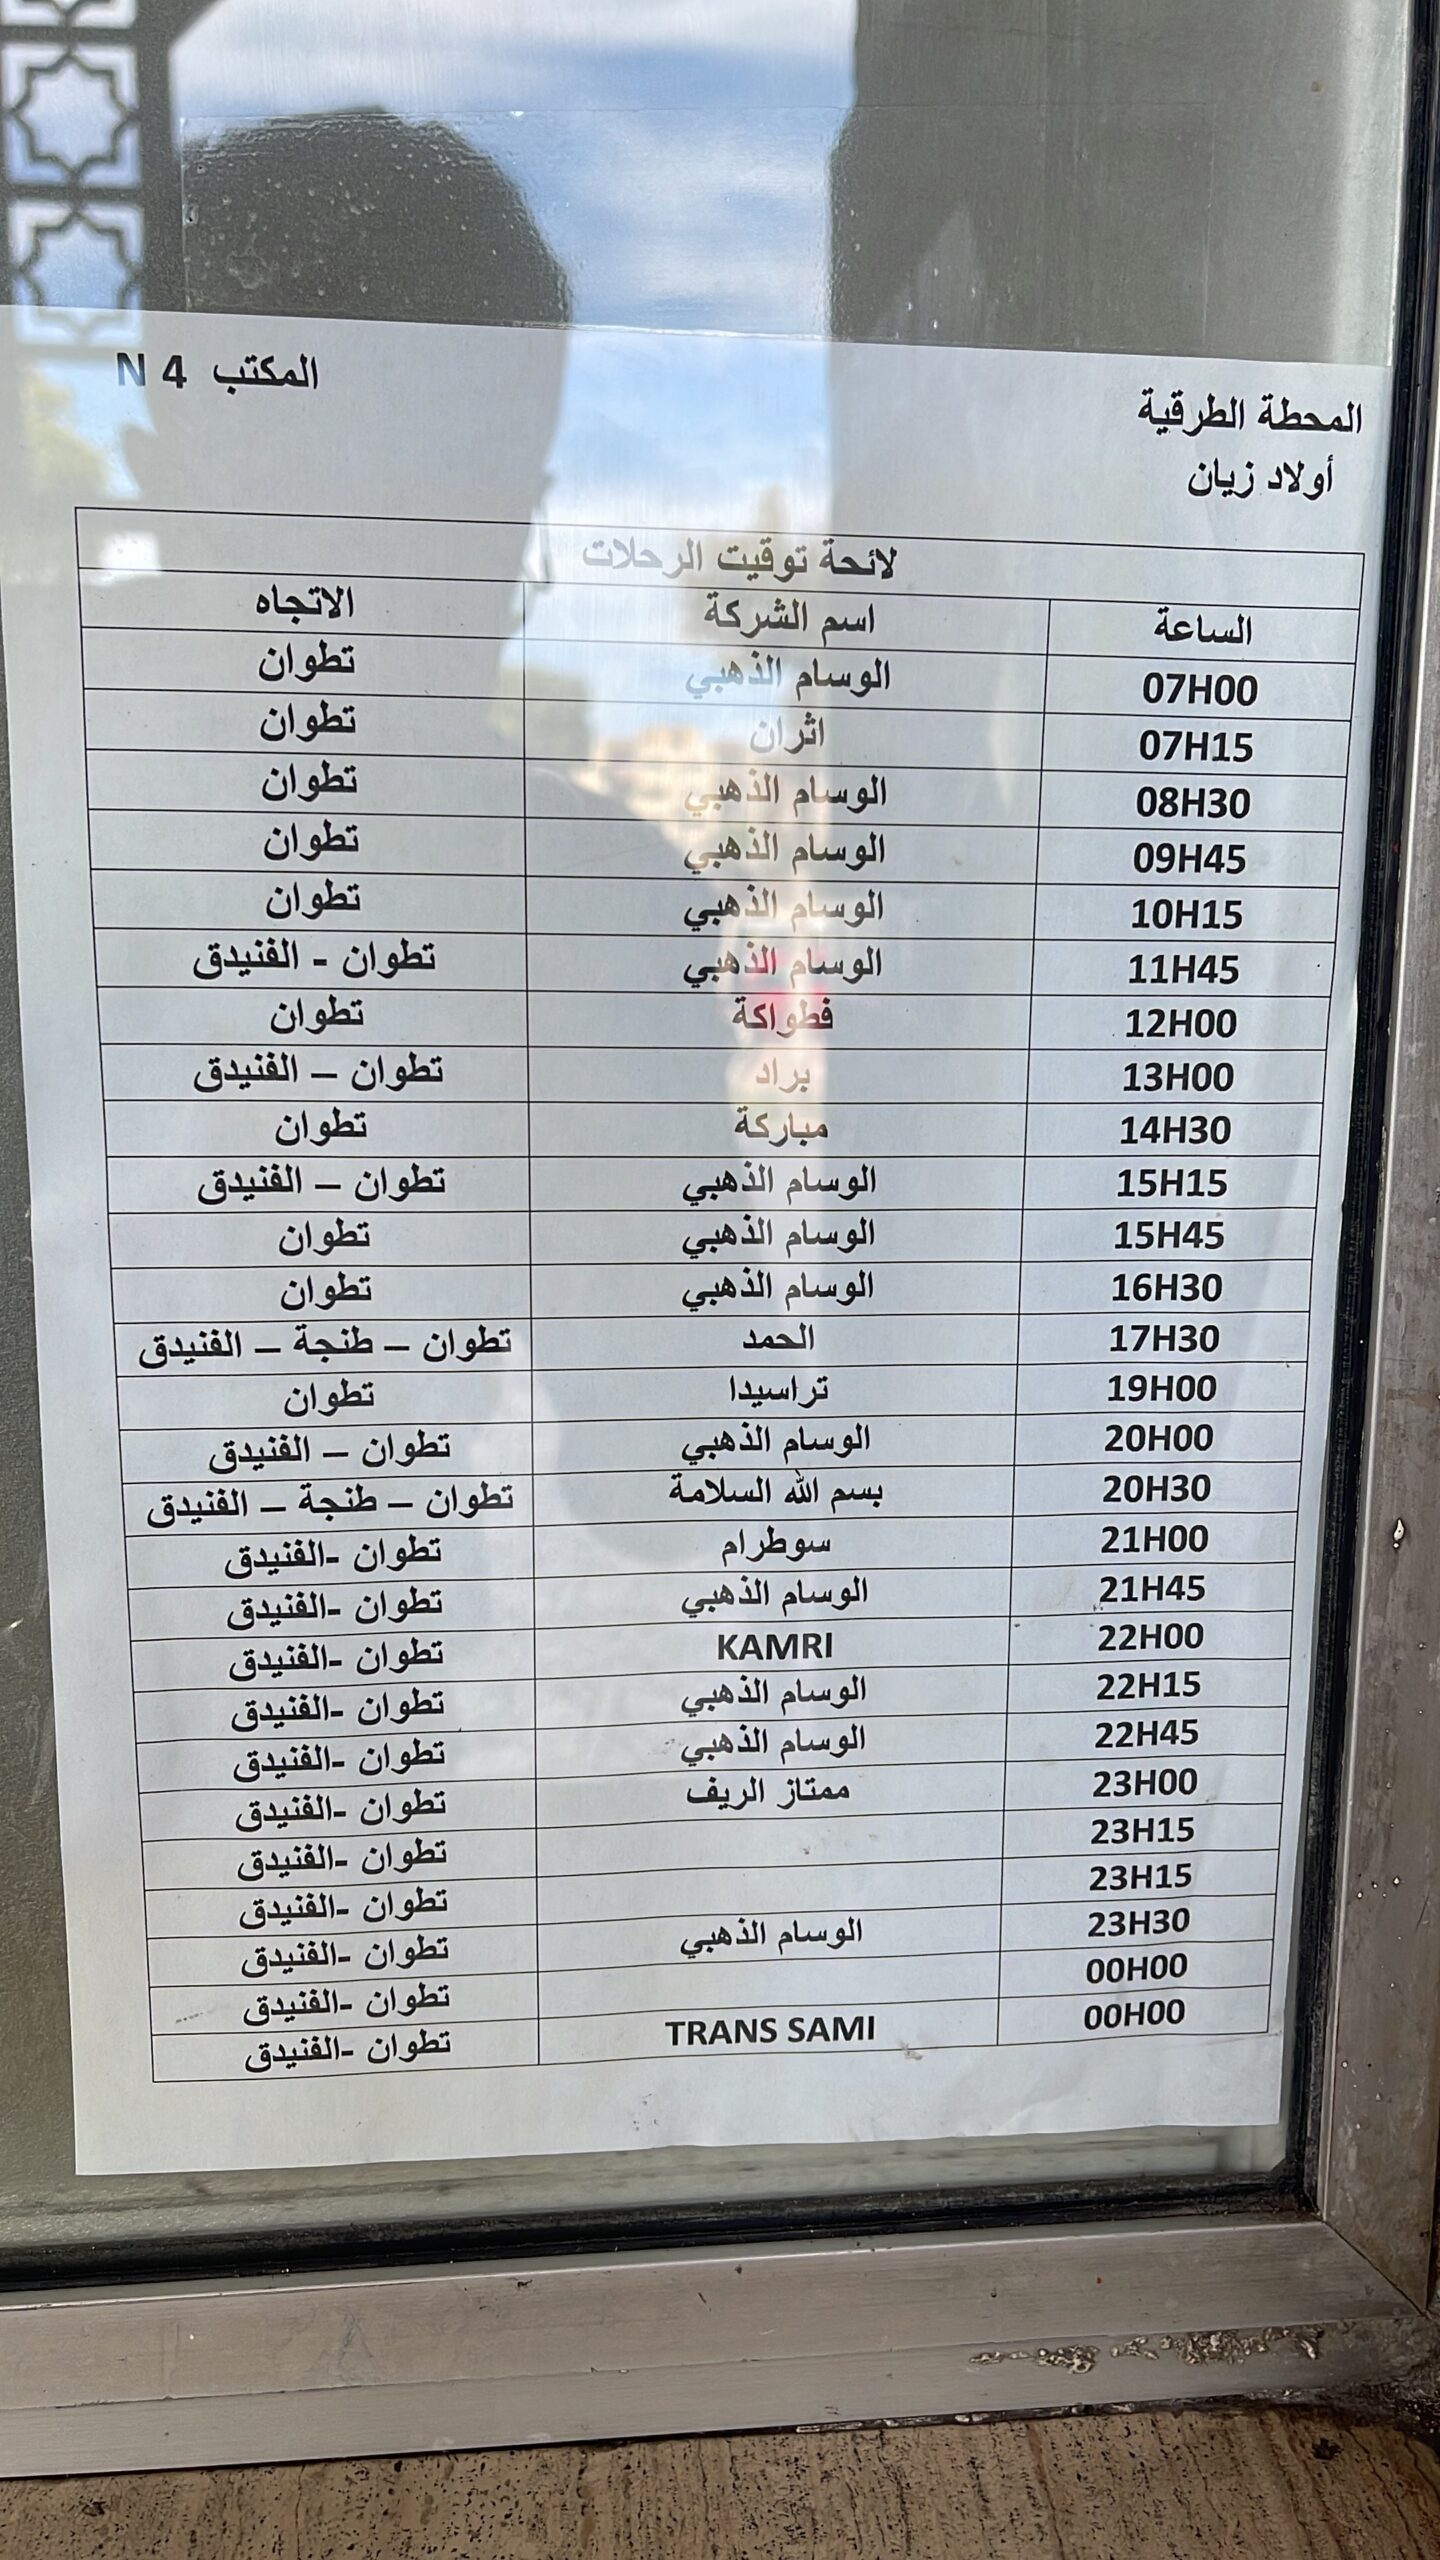 المحطة الطرقية
أولاد زيان
المكتب N 4
لائحة توقيت الرحلات
الساعة اسم الشركة الاتجاه
07H00 الوسام الذهبي تطوان
07H15 اثران تطوان
08H30 الوسام الذهبي تطوان
09H45 الوسام الذهبي تطوان
10H15 الوسام الذهبي تطوان
11H45 الوسام الذهبي تطوان - الفنيدق
12H00 فطواكة تطوان
13H00 براد تطوان – الفنيدق
14H30 مباركة تطوان
15H15 الوسام الذهبي تطوان – الفنيدق
15H45 الوسام الذهبي تطوان
16H30 الوسام الذهبي تطوان
17H30 الحمد تطوان – طنجة – الفنيدق
19H00 تراسيدا تطوان
20H00 الوسام الذهبي تطوان – الفنيدق
20H30 بسم الله السلامة تطوان – طنجة – الفنيدق
21H00 سوطرام تطوان -الفنيدق
21H45 الوسام الذهبي تطوان -الفنيدق
22H00 KAMRI تطوان -الفنيدق
22H15 الوسام الذهبي تطوان -الفنيدق
22H45 الوسام الذهبي تطوان -الفنيدق
23H00 ممتاز الريف تطوان -الفنيدق
23H15 تطوان -الفنيدق
23H15 تطوان -الفنيدق
23H30 الوسام الذهبي تطوان -الفنيدق
00H00 تطوان -الفنيدق
00H00 TRANS SAMI تطوان -الفنيدق